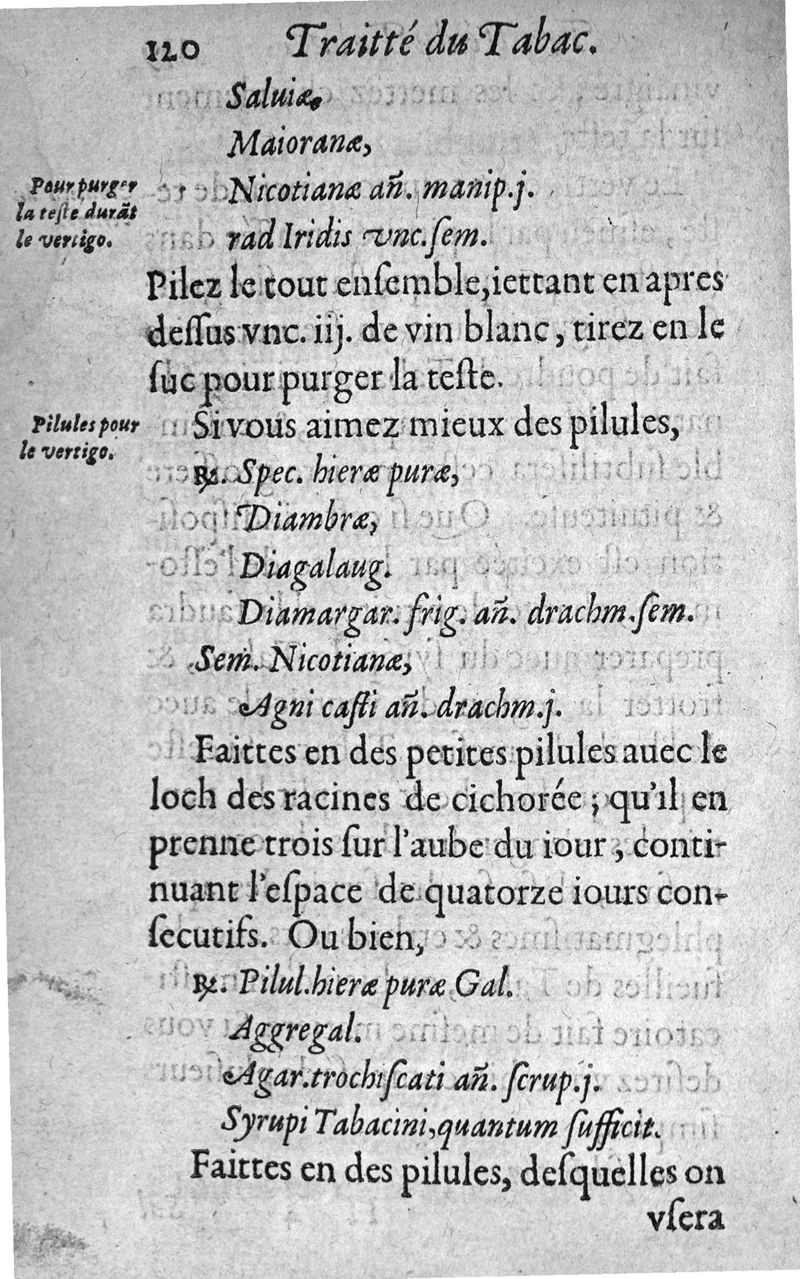 120 Traitté du Tabac.
Saluiæ,
Maioranæ,
Pour purger
la teste durãt
le vertigo.
Nicotianæ añ. manip.j.
rad Iridis vnc.sem.
Pilez le tout ensemble,iettant en apres
dessus vnc. iij. de vin blanc, tirez en le
suc pour purger la teste.
Pilules pour
le vertigo.
Si vous aimez mieux des pilules,
℞. Spec. hieræ puræ,
Diambræ,
Diagalaug.
Diamargar. frig. añ. drachm.sem.
Sem. Nicotianæ,
Agni casti añ. drachm.j.
Faittes en des petites pilules auec le
loch des racines de cichorée ; qu'il en
prenne trois sur l'aube du iour, conti-
nuant l'espace de quatorze iours con-
secutifs. Ou bien,
℞. Pilul.hieræ puræ Gal.
Aggregal.
Agar.trochiscati añ. scrup.j.
Syrupi Tabacini,quantum sufficit.
Faittes en des pilules, desquelles on
vsera